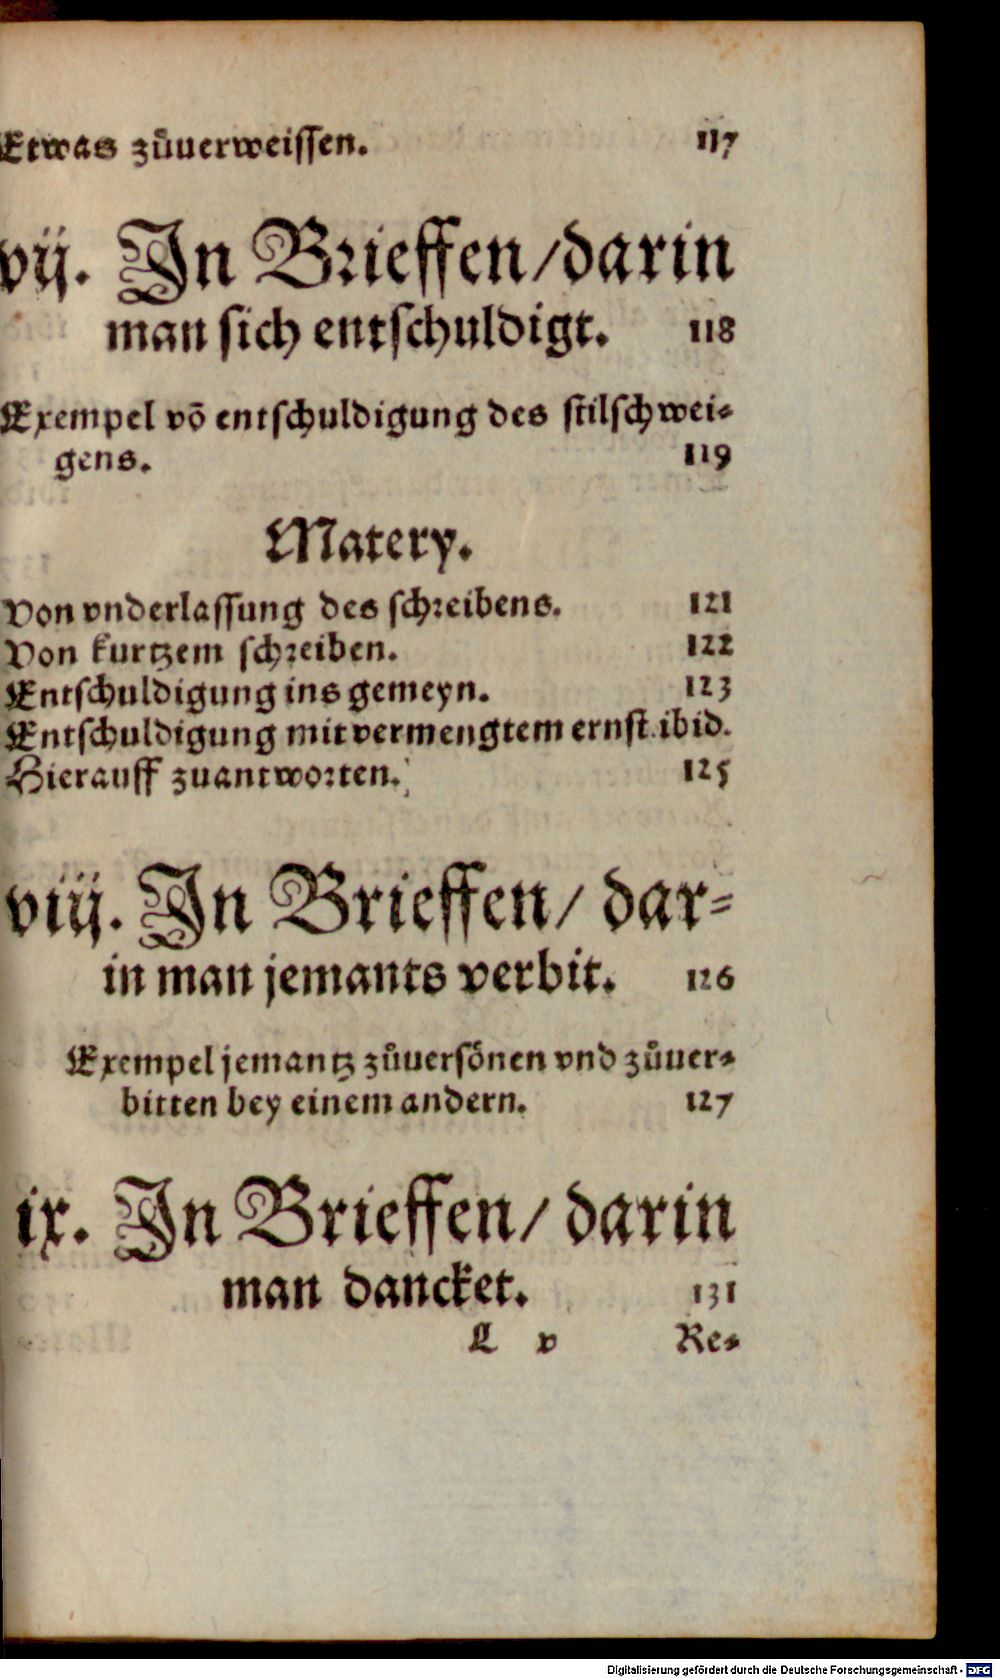 Etwas zůuerweissen. 117
vij. In Brieffen / darin
man sich entschuldigt. 118
Exempel võ entschuldigung des stilschwei-
gens. 119
Matery.
Von vnderlassung des schreibens. 121
Von kurtzem schreiben. 122
Entschuldigung ins gemeyn. 123
Entschuldigung mit vermengtem ernst. ibid.
Hierauff zuantworten. 125
viij. In Brieffen / dar-
in man jemants verbit. 126
Exempel jemantz zůuersönen vnd zůuer-
bitten bey einem andern. 127
ix. In Brieffen / darin
man dancket. 131
L v Re-
Digitalisierung gefördert durch die Deutsche Forschungsgemeinschaft - DFG